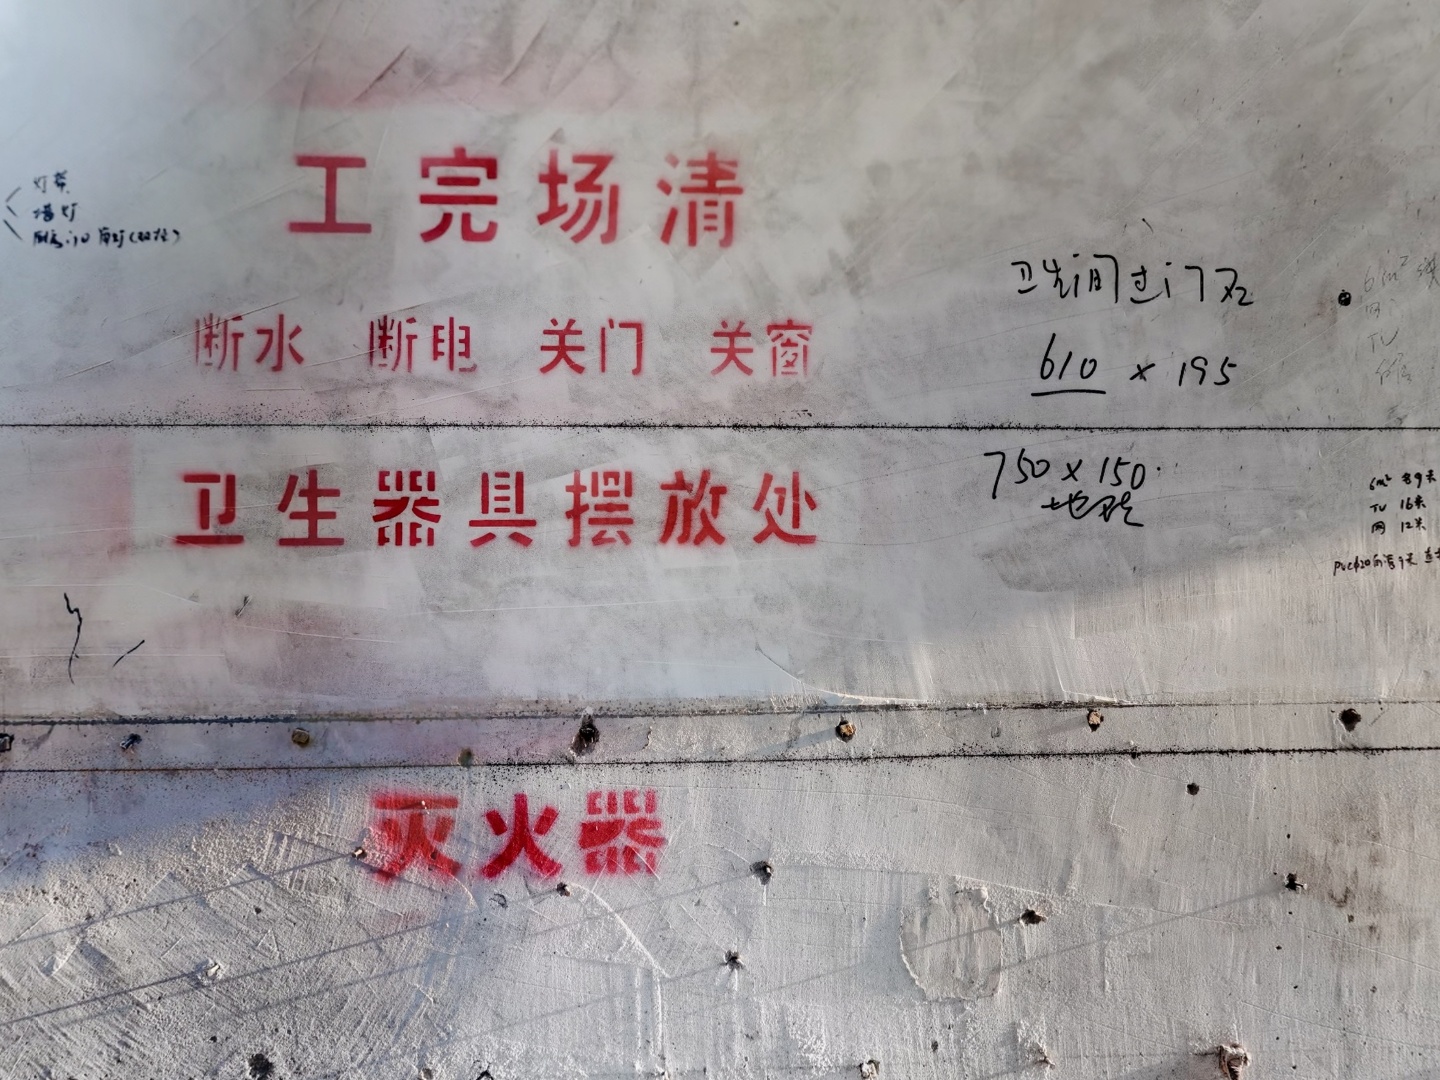 工完场清
断水 断电 关门 关窗
卫生器具摆放处
灭火器
灯带
墙灯
卫生间过门及
610 × 195
750 × 150
6m²
TV
TV 16米
网 12米